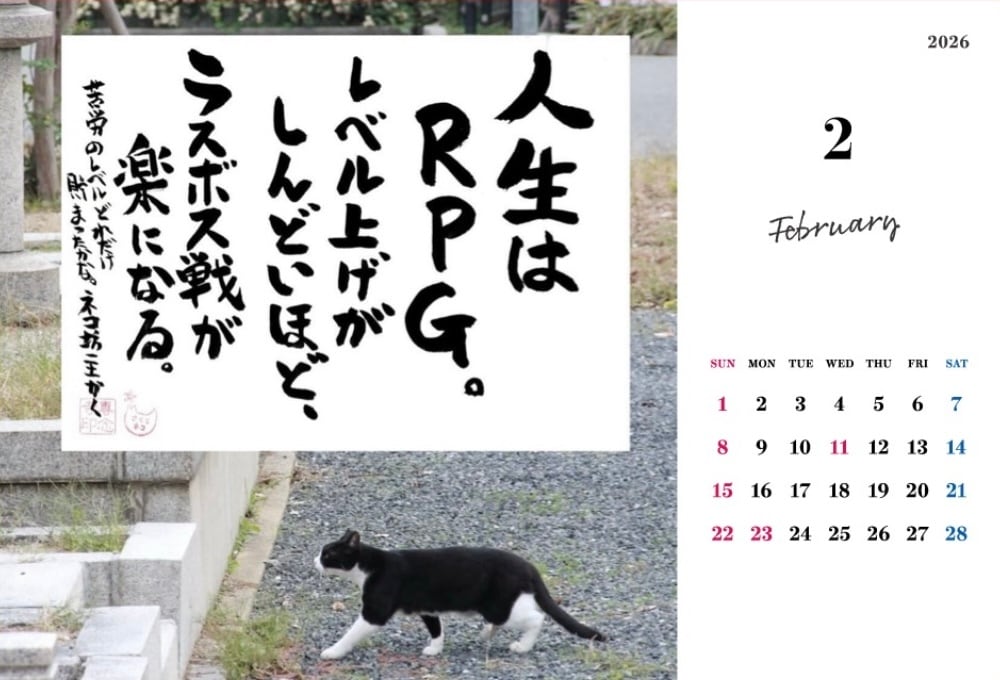 人生は
RPG。
レベル上げが
しんどいほど、
ラスボス戦が
楽になる。
苦労のレベルどれだけ
貯まったかな。ネコ坊主かく
2026
2
February
SUN MON TUE WED THU FRI SAT
1 2 3 4 5 6 7
8 9 10 11 12 13 14
15 16 17 18 19 20 21
22 23 24 25 26 27 28